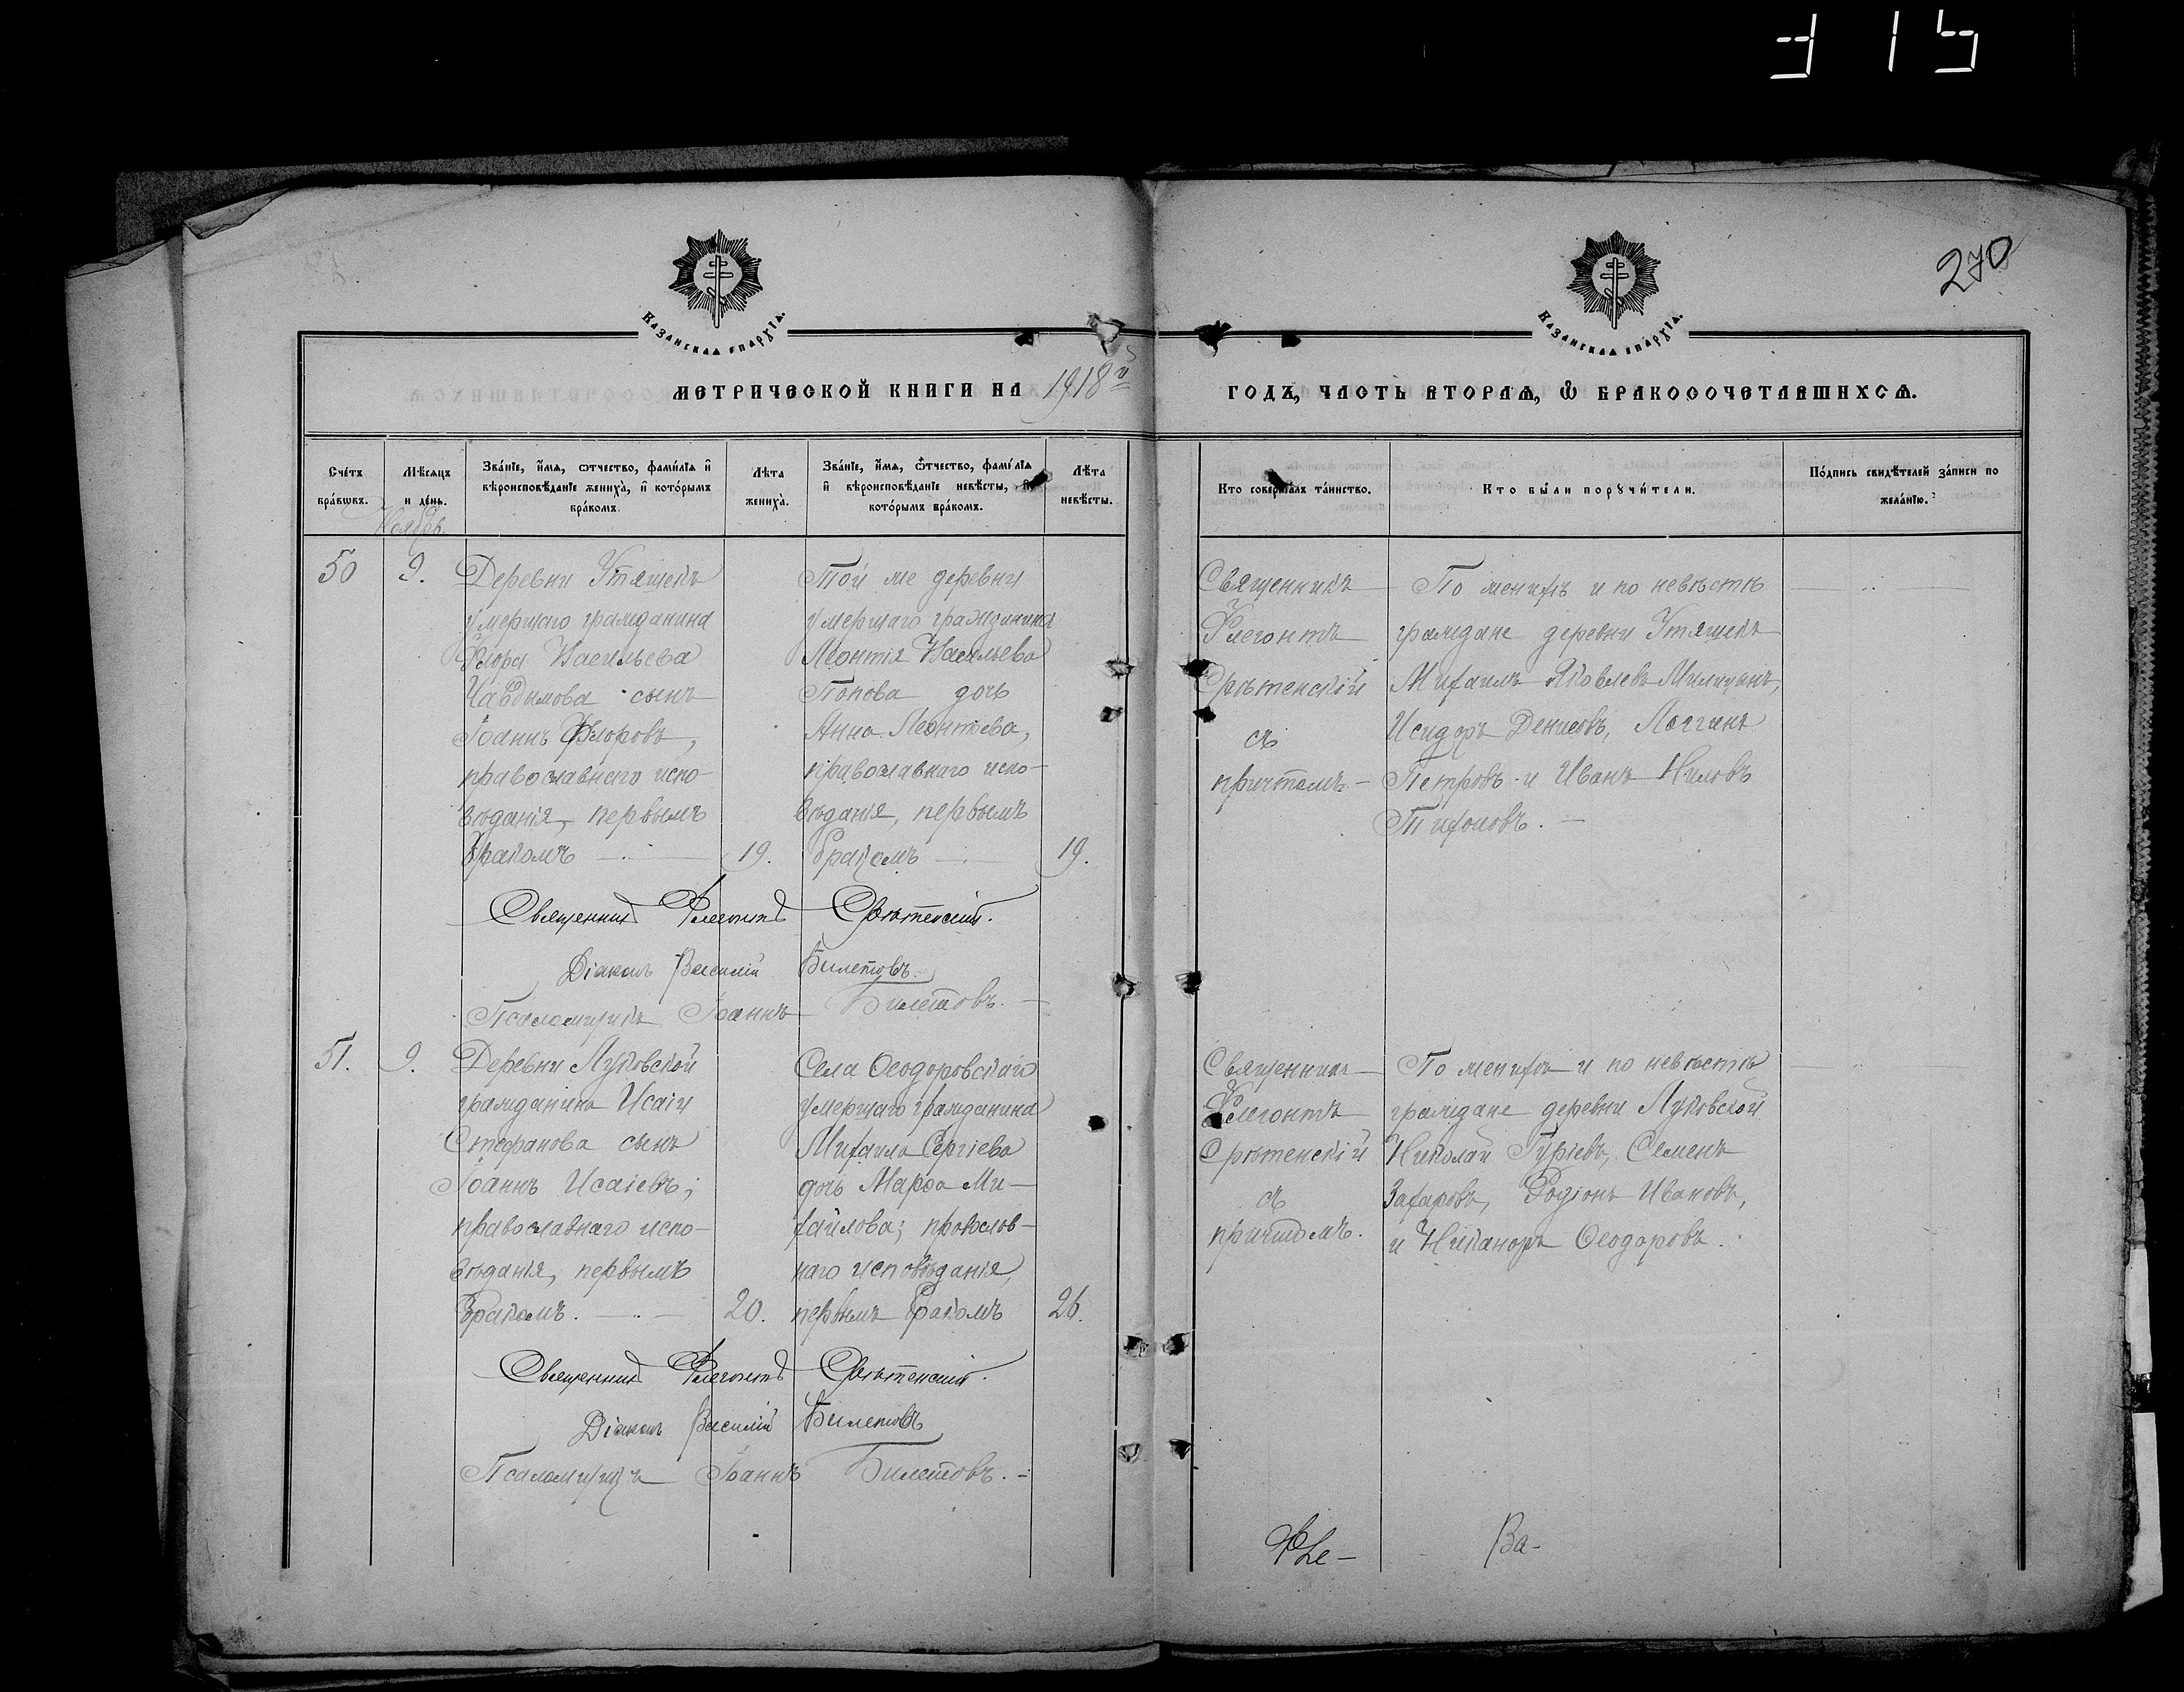 315
270
КАЗАНСКАЯ ЕПАРХІЯ.
КАЗАНСКАЯ ЕПАРХІЯ.
МЕТРИЧЕСКОЙ КНИГИ НА 1918 й
ГОДЪ, ЧАСТЬ ВТОРАѦ, Ѿ БРАКОСОЧЕТАВШИХСѦ.
Счéтъ бráкѡвъ.
Мѣсяцъ и дéнь.
Звáніе, и́мѧ, ѻ́тчество, фами́лія и҆ вѣроисповѣ́даніе женихà, и҆ кото́рымъ брáкомъ.
Лѣта женихà.
Звáніе, и́мѧ, ѻ́тчество, фами́лія и҆ вѣроисповѣ́даніе невѣ́сты, и҆ кото́рымъ брáкомъ.
Лѣта невѣ́сты.
Кто совершáлъ тáинство.
Кто бы́ли порꙋчи́тели.
По́дпись свидѣ́телей зáписи по желáнію.
Ноябрь.
50
9.
Деревни Утяшекъ
умершаго гражданина
Флора Васильева
сынъ
Іоаннъ Флоровъ,
православнаго испо-
вѣданія, первымъ
бракомъ
19.
Той же деревни
умершаго гражданина
Леонтія Васильева
Попова дочь
Анна Леонтьева,
православнаго испо-
вѣданія, первымъ
бракомъ
19.
Священникъ
Флегонтъ
Срѣтенскій
съ
причтомъ.
По женихѣ и по невѣстѣ
граждане деревни Утяшекъ
Михаилъ Яковлевъ
Исидоръ Денисовъ,
Петровъ и Иванъ Ниловъ
Тихоновъ.
Священникъ Флегонтъ Срѣтенскій.
Діаконъ Василій Билетовъ.
Псаломщикъ Іоаннъ Билетовъ.
51.
9.
Деревни Луковской
гражданина Исаіи
Стефанова сынъ
Іоаннъ Исаіевъ;
православнаго испо-
вѣданія, первымъ
бракомъ.
20.
Села Ѳеодоровскаго
умершаго гражданина
Михаила Сергіева
дочь Марѳа Ми-
хайлова; православ-
наго исповѣданія,
первымъ бракомъ
26.
Священникъ
Флегонтъ
Срѣтенскій
съ
причтомъ.
По женихѣ и по невѣстѣ
граждане деревни Луковской
Николай Гуріевъ, Семенъ
Захаровъ, Родіонъ Ивановъ,
и Никаноръ Ѳеодоровъ.
Священникъ Флегонтъ Срѣтенскій.
Діаконъ Василій Билетовъ
Псаломщикъ Іоаннъ Билетовъ.
Фле-
Ва-